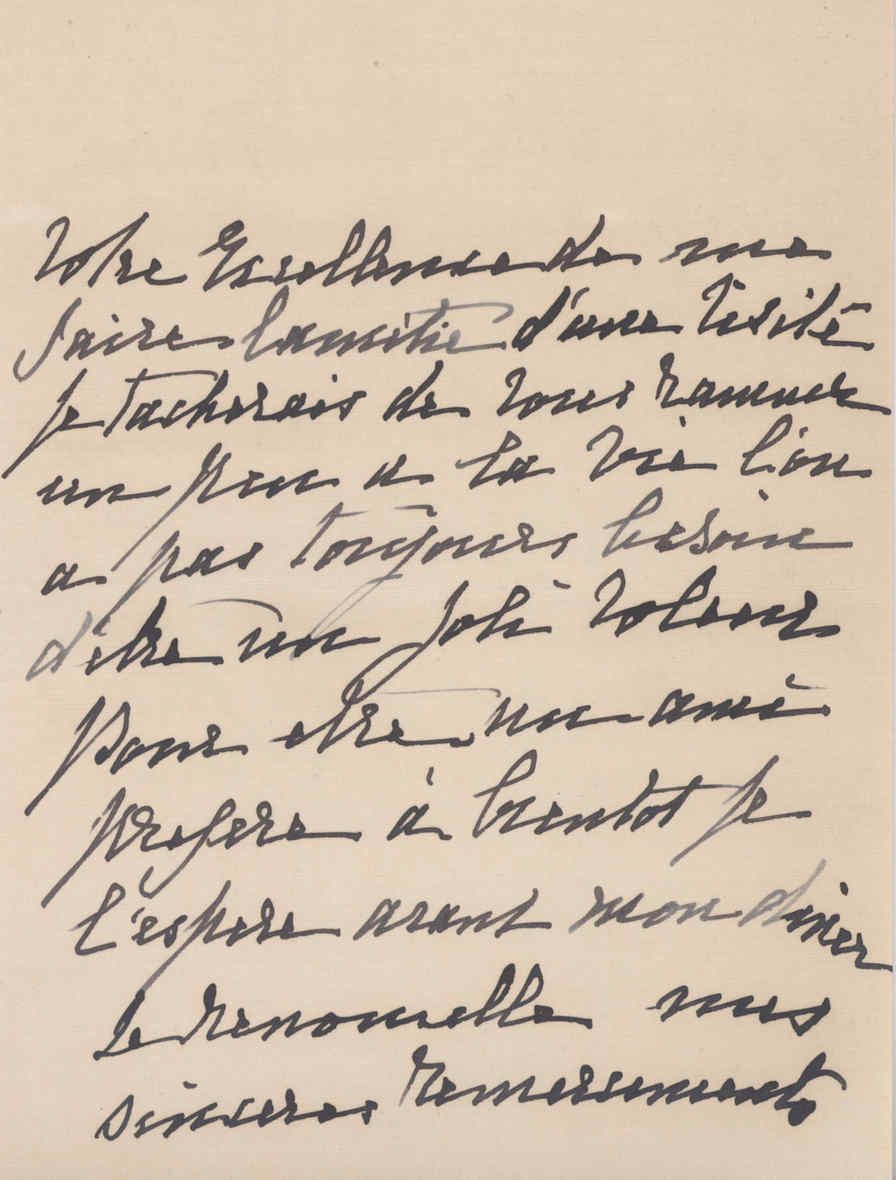 Votre Excellence de me
faire lamitie d'une visite
je tacherais de vous ramener
un peu a la vie l'on
a pas toujours besoin
d'etre un joli voleur
pour etre un ami
prefere à bientot je
l'espere avant mon diner
Je renouvelle mes
sinceres remerciements